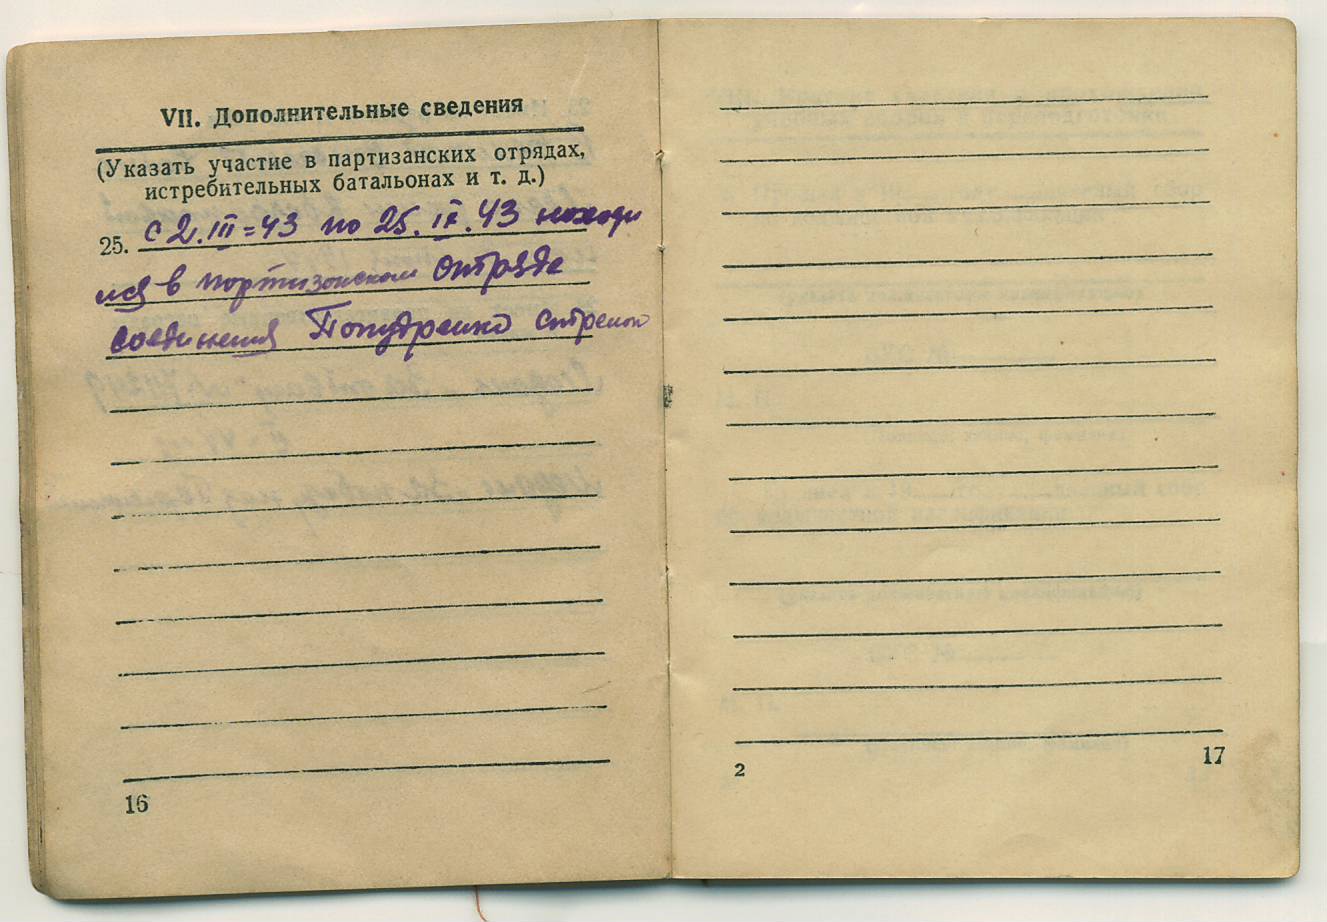 VII. Дополнительные сведения
(Указать участие в партизанских отрядах,
истребительных батальонах и т. д.)
25. с 2.III=43 по 25.IX.43 находи
лся в партизанском отряде
соединения Попудренко стрелок
16
2
17